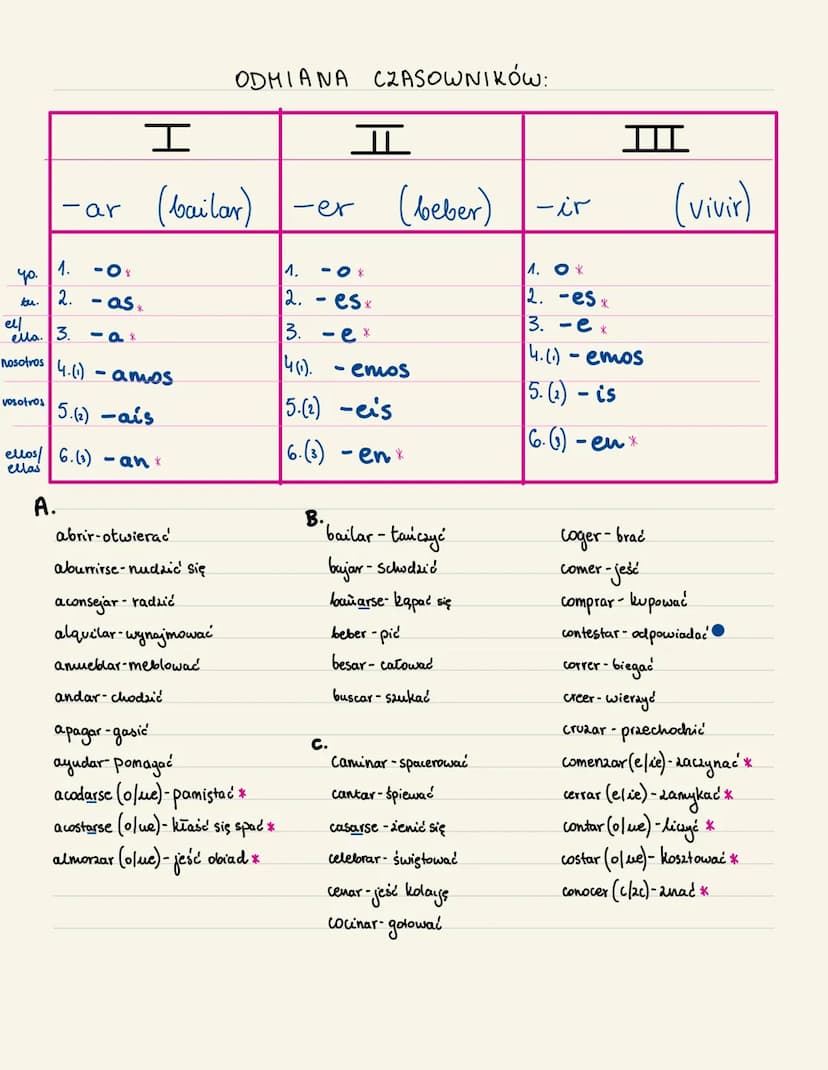 ODMIANA CZASOWNIKÓW:
I II III
-ar (bailar) -er (beber) -ir (vivir)
yo. 1. -o* 1. -o* 1. o*
tu. 2. -as* 2. -es* 2. -es*
el/ella. 3. -a* 3. -e* 3. -e*
nosotros 4.(1) -amos 4(1). -emos 4.(1) -emos
vosotros 5.(2) -aís 5.(2) -eís 5.(2) -is
ellos/ellas 6.(3) -an* 6.(3) -en* 6.(3) -en*
A.
abrir-otwierać
aburrirse-nudzić się
aconsejar-radzić
alquilar-wynajmować
amueblar-meblować
andar-chodzić
apagar-gasić
ayudar-pomagać
acodarse (o/ue)-pamiętać*
acostarse (o/ue)-kłaść się spać*
almorzar (o/ue)-jeść obiad*
B.
bailar-tańczyć
bajar-schodzić
bañarse-kąpać się
beber-pić
besar-całować
buscar-szukać
C.
caminar-spacerować
cantar-śpiewać
casarse-żenić się
celebrar-świętować
cenar-jeść kolację
cocinar-gotować
coger-brać
comer-jeść
comprar-kupować
contestar-odpowiadać
correr-biegać
creer-wierzyć
cruzar-przechodzić
comenzar (e/ie)-zaczynać*
cerrar (e/ie)-zamykać*
contar (o/ue)-liczyć*
costar (o/ue)-kosztować*
conocer (c/zc)-znać*